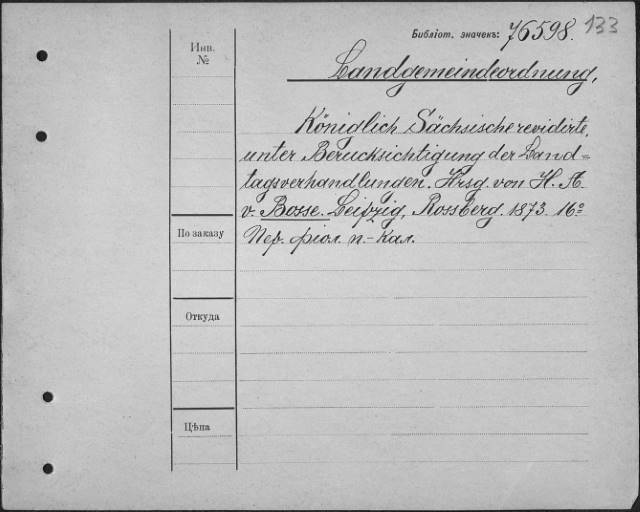 Библіот. значекъ: 76598. 133
Инв. №
Landgemeindeordnung,
Königlich Sächsische revidirte,
unter Berucksichtigung der Land=
tagsverhandlungen. Hrsg. von H. A.
v. Bosse. Leipzig, Rossberg. 1873. 16°
По заказу
Пер. фіол. п.-кал.
Откуда
Цѣна